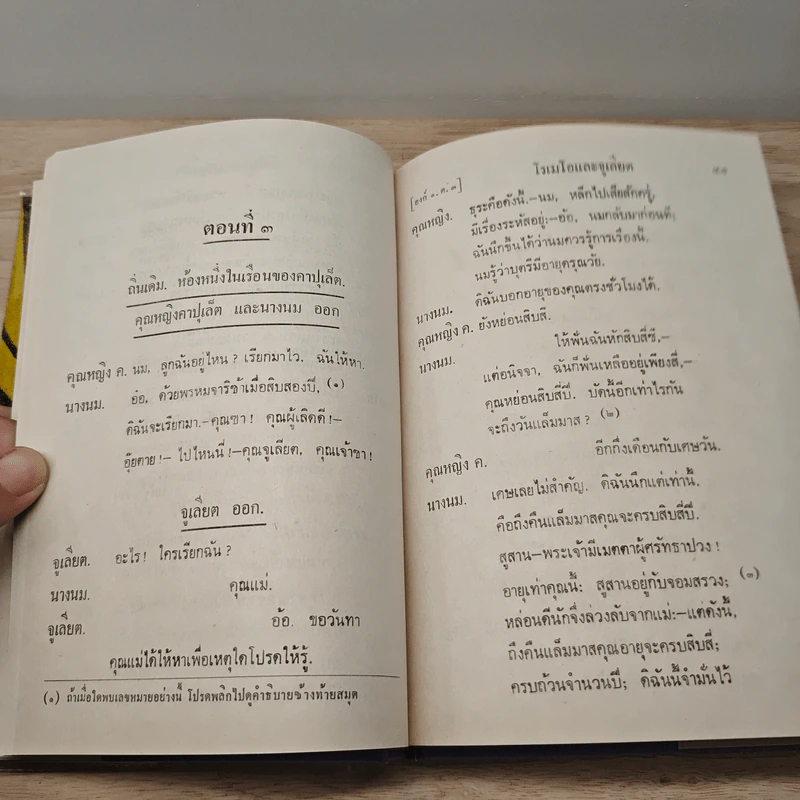 ตอนที่ ๓
ถิ่นเดิม. ห้องหนึ่งในเรือนของคาปุเล็ต.
คุณหญิงคาปุเล็ต และนางนม ออก
คุณหญิง ค. นม, ลูกฉันอยู่ไหน? เรียกมาไว. ฉันให้หา.
นางนม. อ๋อ, ด้วยพรหมจาริช้าเมื่อสิบสองปี, (๑)
ดิฉันจะเรียกมา.–คุณขา! คุณผู้เลิดดี!–
อุ๊ยตาย!– ไปไหนนี่!–คุณจูเลียต, คุณเจ้าขา!
จูเลี่ยต ออก.
จูเลี่ยต. อะไร! ใครเรียกฉัน?
นางนม. คุณแม่.
จูเลี่ยต. อ้อ. ขอวันทา
คุณแม่ได้ให้หาเพื่อเหตุใดโปรดให้รู้.
(๑) ถ้าเมื่อใดพบเลขหมายอย่างนี้ โปรดพลิกไปดูคำธิบายข้างท้ายสมุด
โรเมโอและจูเลี่ยต
[องก์ ๑. ต. ๓]
คุณหญิง. ธุระคือดังนี้.–นม, หลีกไปเสียสักครู่,
มีเรื่องระหัสอยู่:–อ้อ, นมกลับมาก่อนดี;
ฉันนึกขึ้นได้ว่านมควรรู้การเรื่องนี้,
นมรู้ว่าบุตรีมีอายุดรุณวัย.
นางนม. ดิฉันบอกอายุของคุณตรงชั่วโมงได้.
คุณหญิง ค. ยังหย่อนสิบสี่.
นางนม. ให้พั่นฉันหักสิบสี่ซี่,–
แต่อนิจจา, ฉันก็พั่นเหลืออยู่เพียงสี่,–
คุณหย่อนสิบสี่ปี. บัดนี้อีกเท่าไรกัน
จะถึงวันแล็มมาส? (๒)
คุณหญิง ค. อีกกึ่งเดือนกับเศษวัน.
นางนม. เศษเลยไม่สำคัญ. ดิฉันนึกแต่เท่านี้,
คือถึงคืนแล็มมาสคุณจะครบสิบสี่ปี.
สูสาน–พระเจ้ามีเมตตาผู้ศรัทธาปวง!
อายุเท่าคุณนี้: สูสานอยู่กับจอมสรวง; (๓)
หล่อนดีนักจึ่งล่วงลับจากแม่:–แต่ดังนี้,
ถึงคืนแล็มมาสคุณอายุจะครบสิบสี่;
ครบถ้วนจำนวนปี; ดิฉันนี้จำมั่นไว้